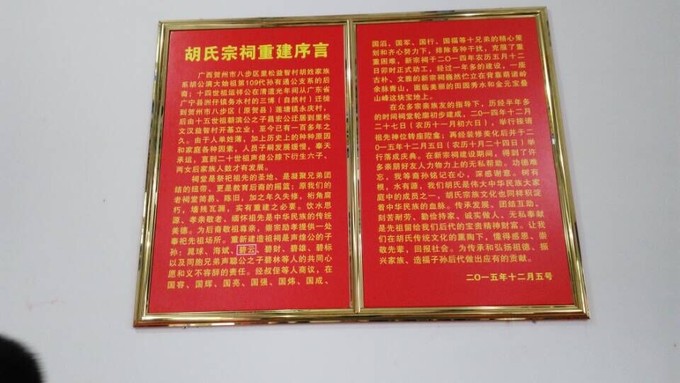 胡氏宗祠重建序言
广西贺州市八步区里松益智村胡姓家族
系胡公满大始祖第109代孙有通公支系的后
裔；十四世祖绍伴公在清道光年间从广东省
广宁县洲仔镇务水村的三博（自然村）迁徙
到贺州市八步区（原贺县）连塘镇永庆村，
后由十五世祖朝滨公之子昌宏公迁居到里松
文汉益智村开基立业，至今已有一百多年之
久。由于人单姓薄，加上历史上的种种原因
和家庭各种因素，人员子嗣发展缓慢，奉天
承运，直到二十世祖声煌公膝下衍生六子、
两女后家族人胜才有发展。
祠堂是祭祀祖先的圣地、是凝聚兄弟团
结的纽带、更是教育后裔的摇篮；原我们的
老祠堂简易、陈旧，加之年久失修，桁角腐
朽、墙残瓦漏，实有重建之必要。饮水思
源、孝亲敬老、缅怀祖先是中华民族的传统
美德，为后裔教遵崇孝，崇宗励孝提供一处
奉祀先祖场所，重新建造祖祠是声煌公的子
孙：晃球、海斌、碧云、碧财、碧雄、碧标
以及同胞兄弟声聪公之子碧林等人的共同心
愿和义不容辞的责任。经叔侄等人商议，在
国容、国辉、国亮、国强、国炜、国成、
国滔、国军、国行、国福等十兄弟的精心策
划和齐心努力下，排除各种干扰，克服了重
重困难，新宗祠于二〇一四年农历五月十二
日卯时正式动工。经过一年多的建设，一座
古朴、文雅的新宗祠巍然伫立在背靠葫诸岭
余脉青山，面临美丽的田园秀水和金元宝叠
山峰这块宝地上。
在众多宗亲族友的指导下，历经半年多
的时间祠堂轮廓初步建成，二〇一四年十二月
二十七日（农历十一月初六日），举行报请
祖先神位转座庇殿；再经装修美化后并于二
〇一五年十二月五日（农历十月二十四日）举
行落成庆典。在新宗祠建设期间，得到了许
多亲朋好友人力物力上的无私帮助，功德难
忘，我等裔孙铭记在心，深感谢意。树有
根，水有源，我们胡氏是伟大中华民族大家
庭中的成员之一，胡氏宗族文化也同样积淀
着中华民族的血脉。传承发展，团结互助、
刻苦耐劳、勤俭持家、诚实做人、无私奉献
是先祖留给我们后代的宝贵精神财富。让我
们在胡氏传统文化的熏陶下，懂得感恩、崇
敬先辈，回报社会。为传承和弘扬祖德、振
兴家族、造福子孙后代做出应有的贡献。
二〇一五年十二月五号